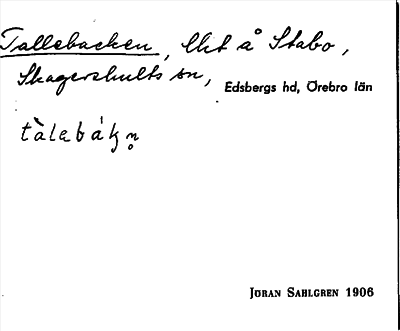 Tallebacken, lht å Stabo,
Skagershults sn, Edsbergs hd, Örebro län
tàlebák
JÖRAN SAHLGREN 1906